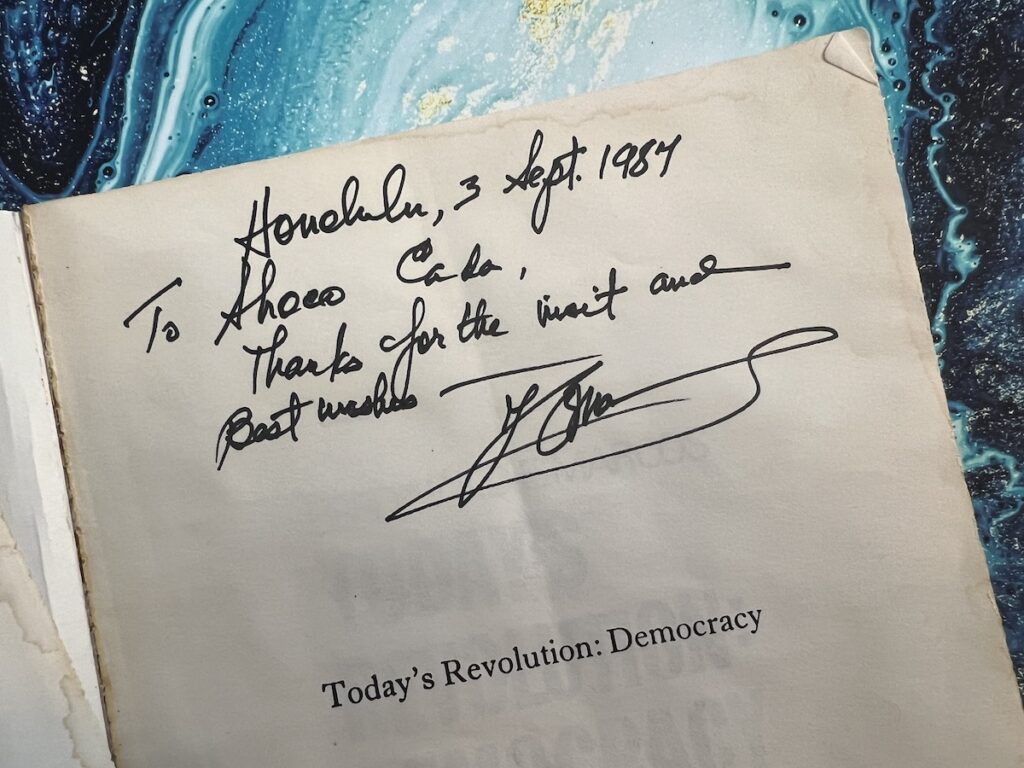 Honolulu, 3 Sept. 1987
To
Thanks for the visit and
Best wishes
Today's Revolution: Democracy